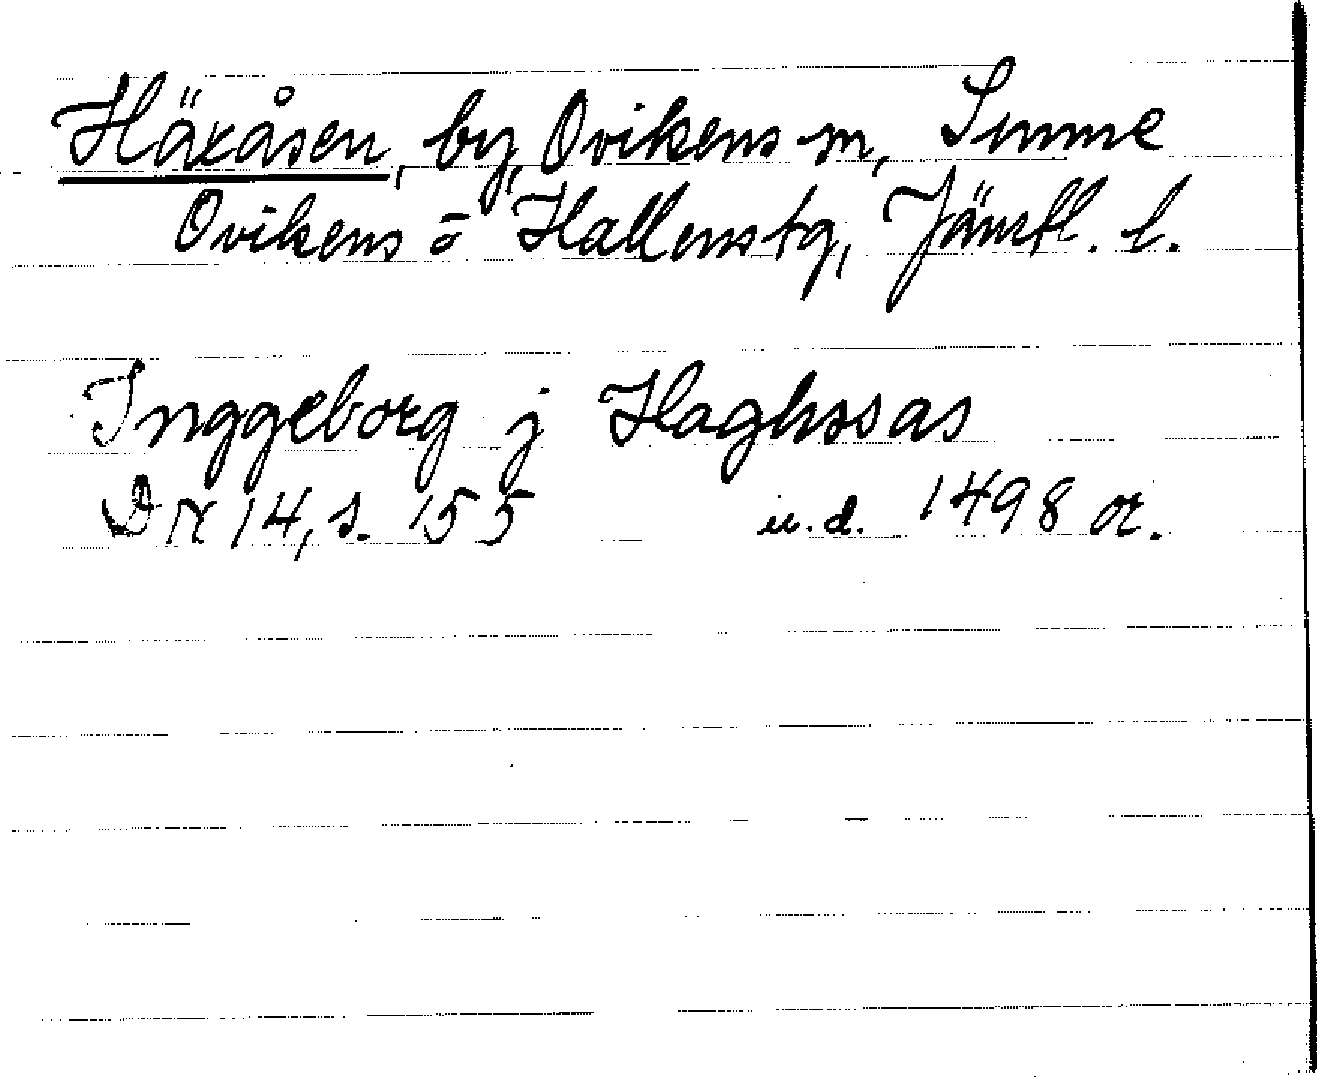 Häxåsen, by, Ovikens sn, Sunne
Ovikens o Hallens tg, Jämtl. l.
Inggeborg j Haghssas
DN 14, s. 155 u.d. 1498 or.